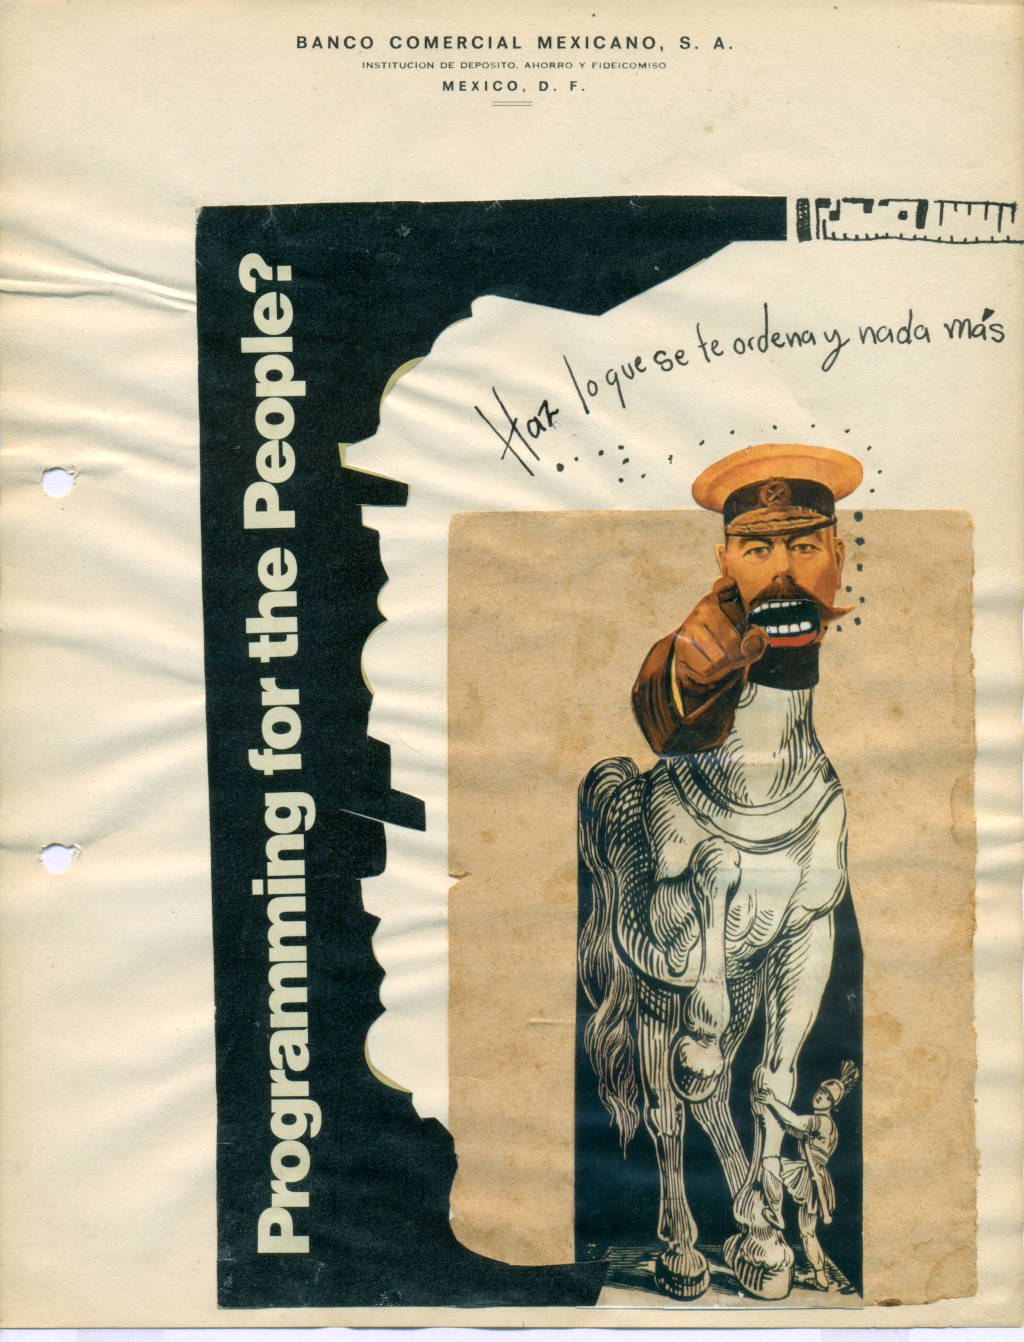 BANCO COMERCIAL MEXICANO, S. A.
INSTITUCION DE DEPOSITO, AHORRO Y FIDEICOMISO
MEXICO, D. F.
Programming for the People?
Haz lo que se te ordena y nada más